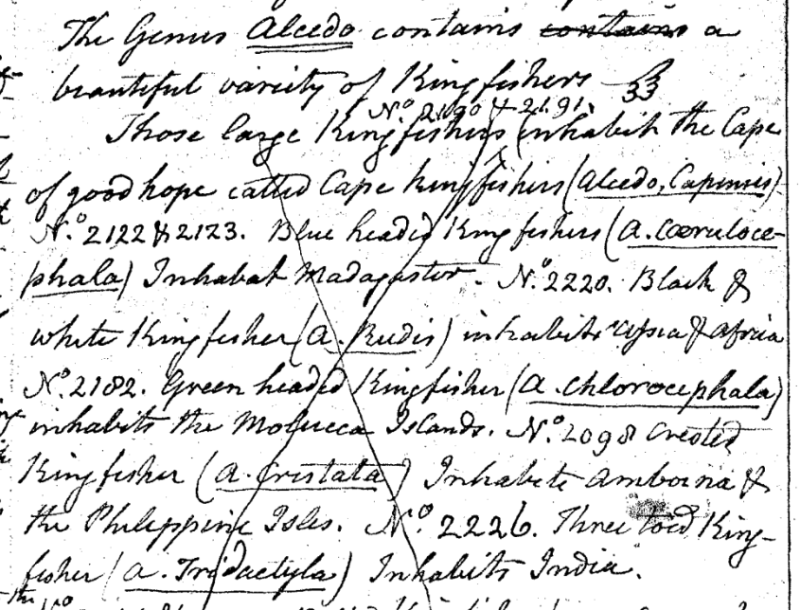 The Genus Alcedo contains contains a
beautiful variety of Kingfishers 33
No. 2190 & 2191.
Those large Kingfishers inhabit the Cape
of good hope called Cape Kingfishers (Alcedo, Capensis)
No. 2122 & 2123. Blue headed Kingfishers (A. Cœruloce-
phala) Inhabat Madagastor. No. 2220. Black &
white Kingfisher (A. Rudis) inhabits Asia & Africa
No. 2182. Green headed Kingfisher (A. Chlorocephala)
inhabits the Molucca Islands. No. 2098 Crested
Kingfisher (A. Cristata) Inhabits Amboina &
the Philippine Isles. No. 2226. Three toed King-
fisher (A. Tridactyla) Inhabits India.